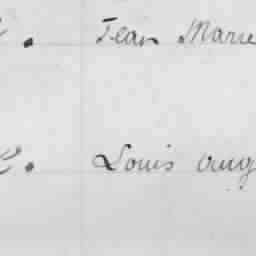 . Jean Marie
. Louis aug